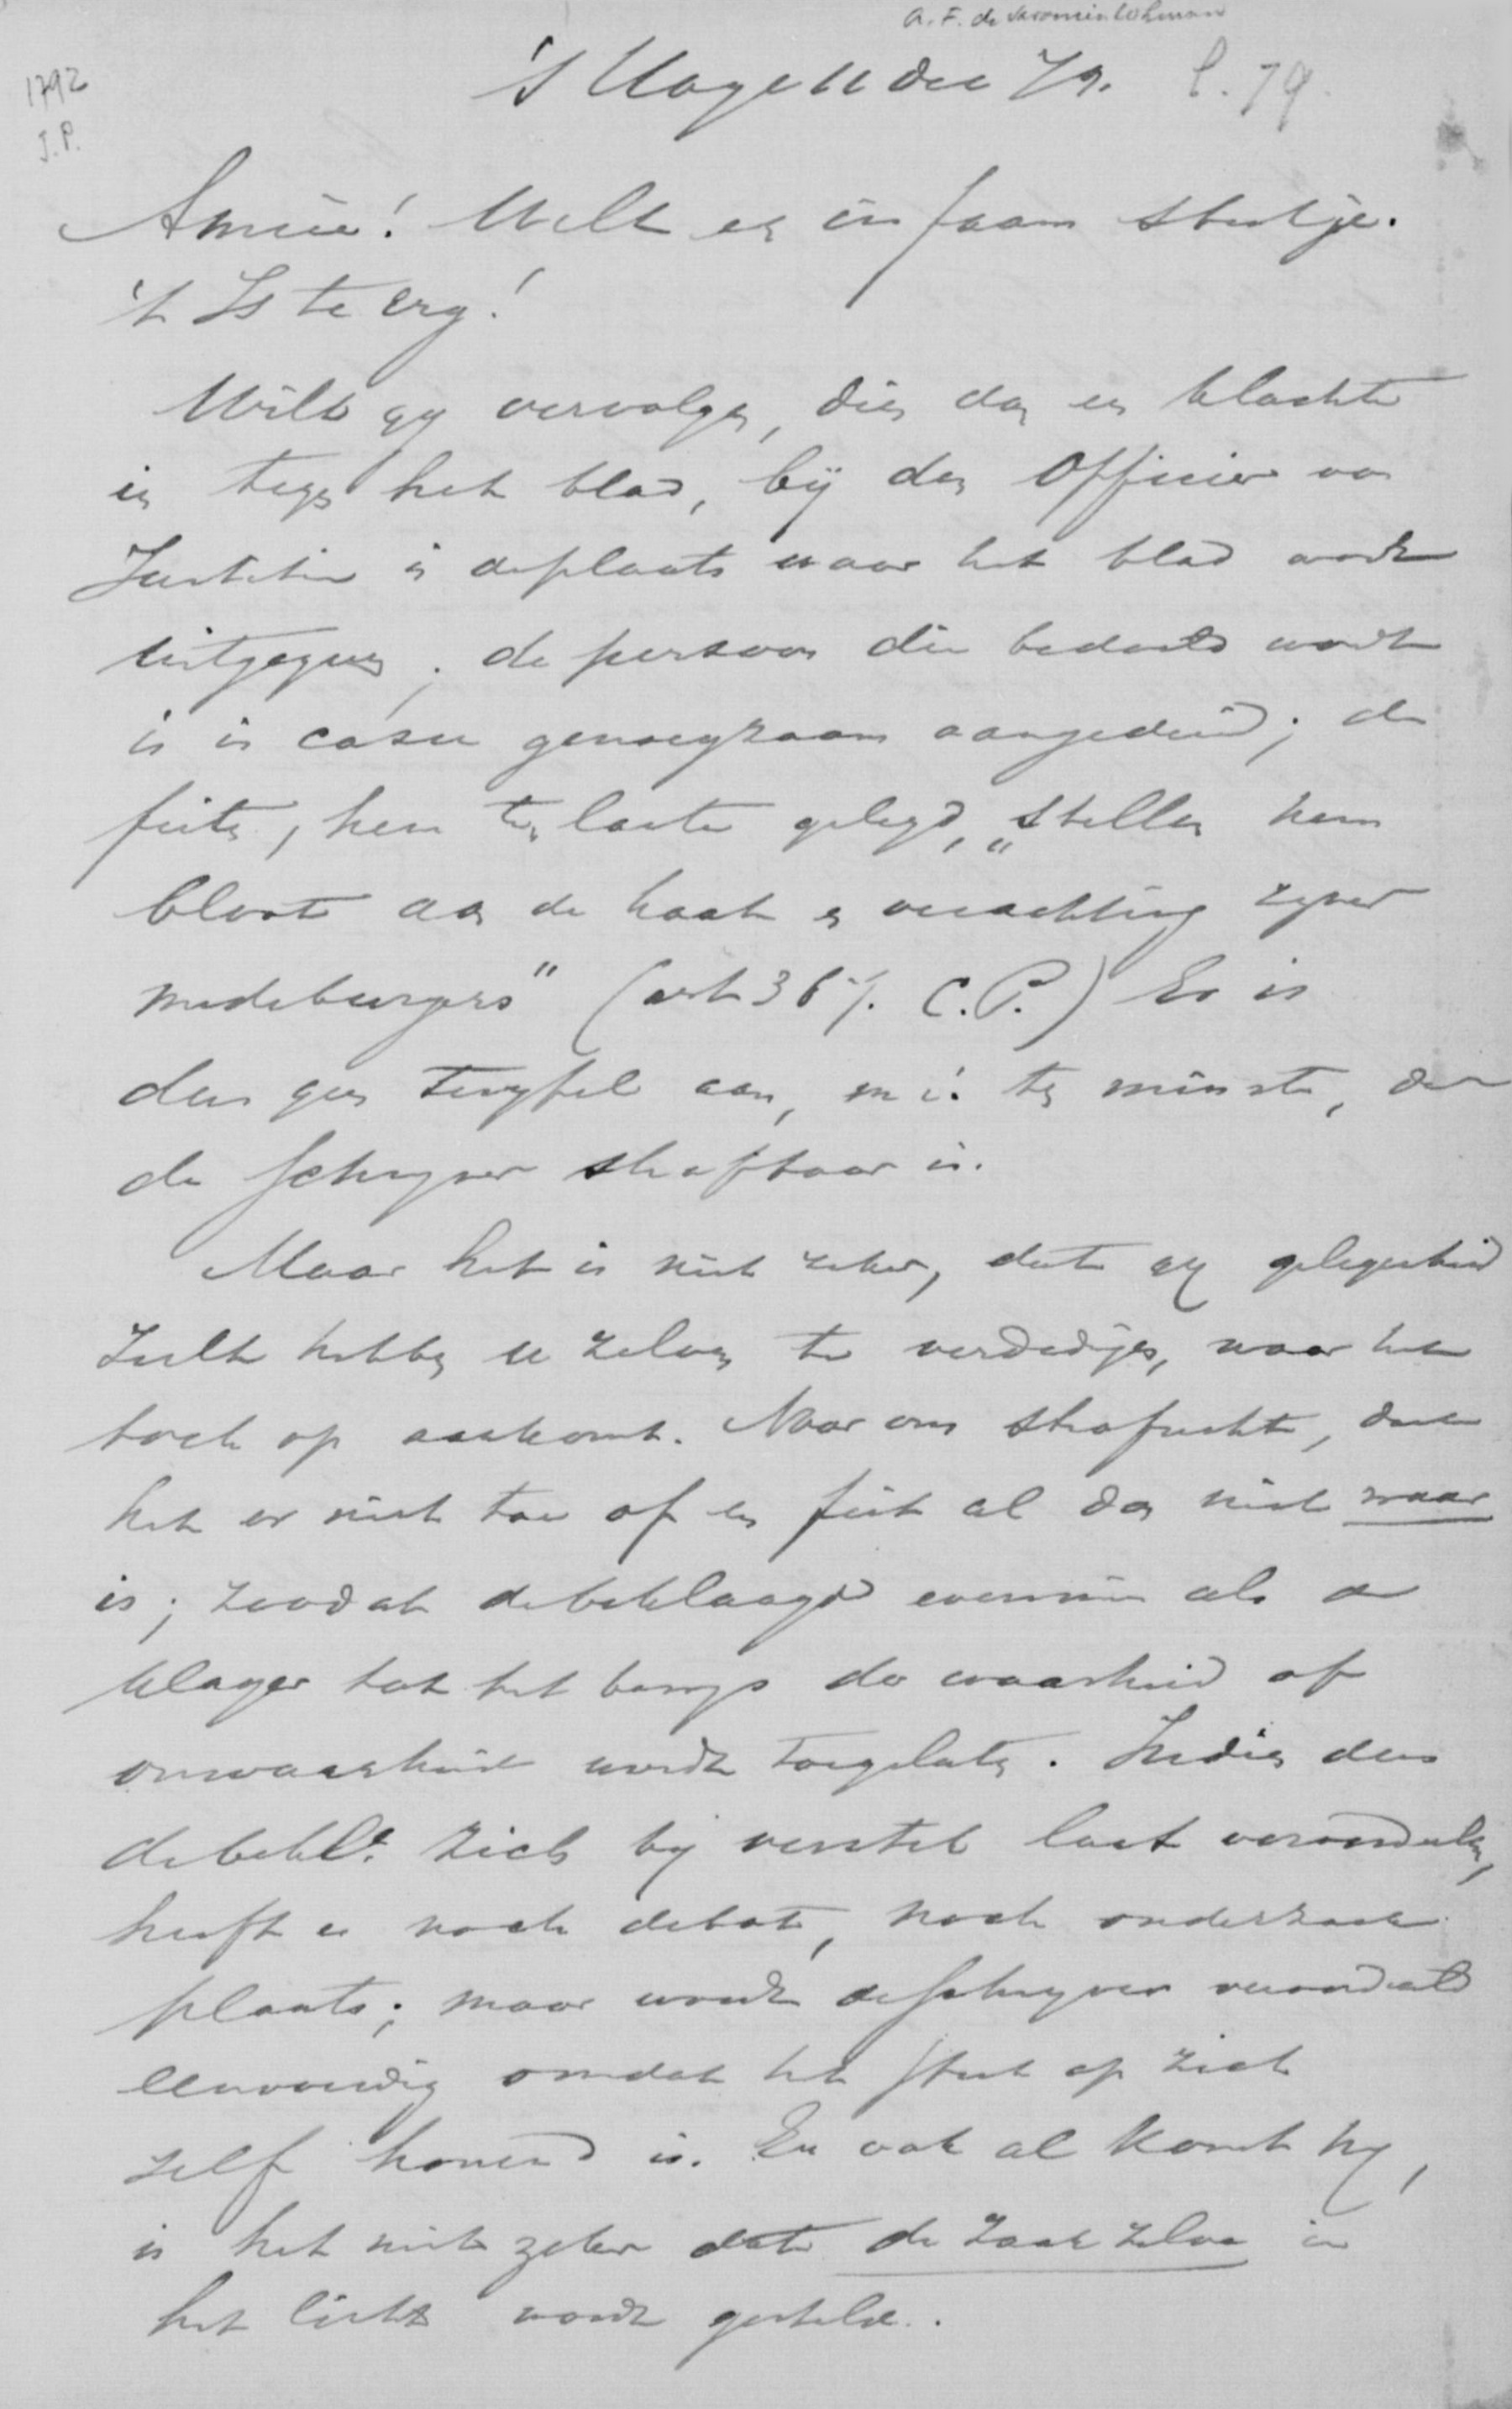 A. F. de Savornin Lohman
1792
J. P.
's Hage 11 dec 79. C. 79.
Amice! Welk een infaam stukje.
't Is te erg!
Wilt gy vervolgen, dien dan een klachte
in tegen het blad, bij den Officier van
Justitie in de plaats waar het blad wordt
uitgegeven; de persoon die bedoeld wordt
is in casu genoegzaam aangeduid; de
feiten, hem ten laste gelegd, „stellen hem
bloot aan de haat en verachting zyner
medeburgers" (art 367. C.P.) Er is
dus geen twyfel aan, m.i. ten minste, dat
de schryver strafbaar is.
Maar het is niet zeker, dat gy gelegenheid
zult hebben u zelven te verdedigen, waar het
toch op aankomt. Naar ons strafrecht, doet
het er niet toe of een feit al dan niet waar
is; zoodat de beklaagde evenmin als de
klager tot het bewys der waarheid of
onwaarheid wordt toegelaten. Indien dus
de bekl.e zich by verstek laat veroordeelen,
heeft er noch debat, noch onderzoek
plaats; maar wordt de schryver veroordeeld
eenvoudig omdat het stuk op zich
zelf honend is. En ook al komt hy,
is het niet zeker dat de zaak zelve in
het licht wordt gesteld.